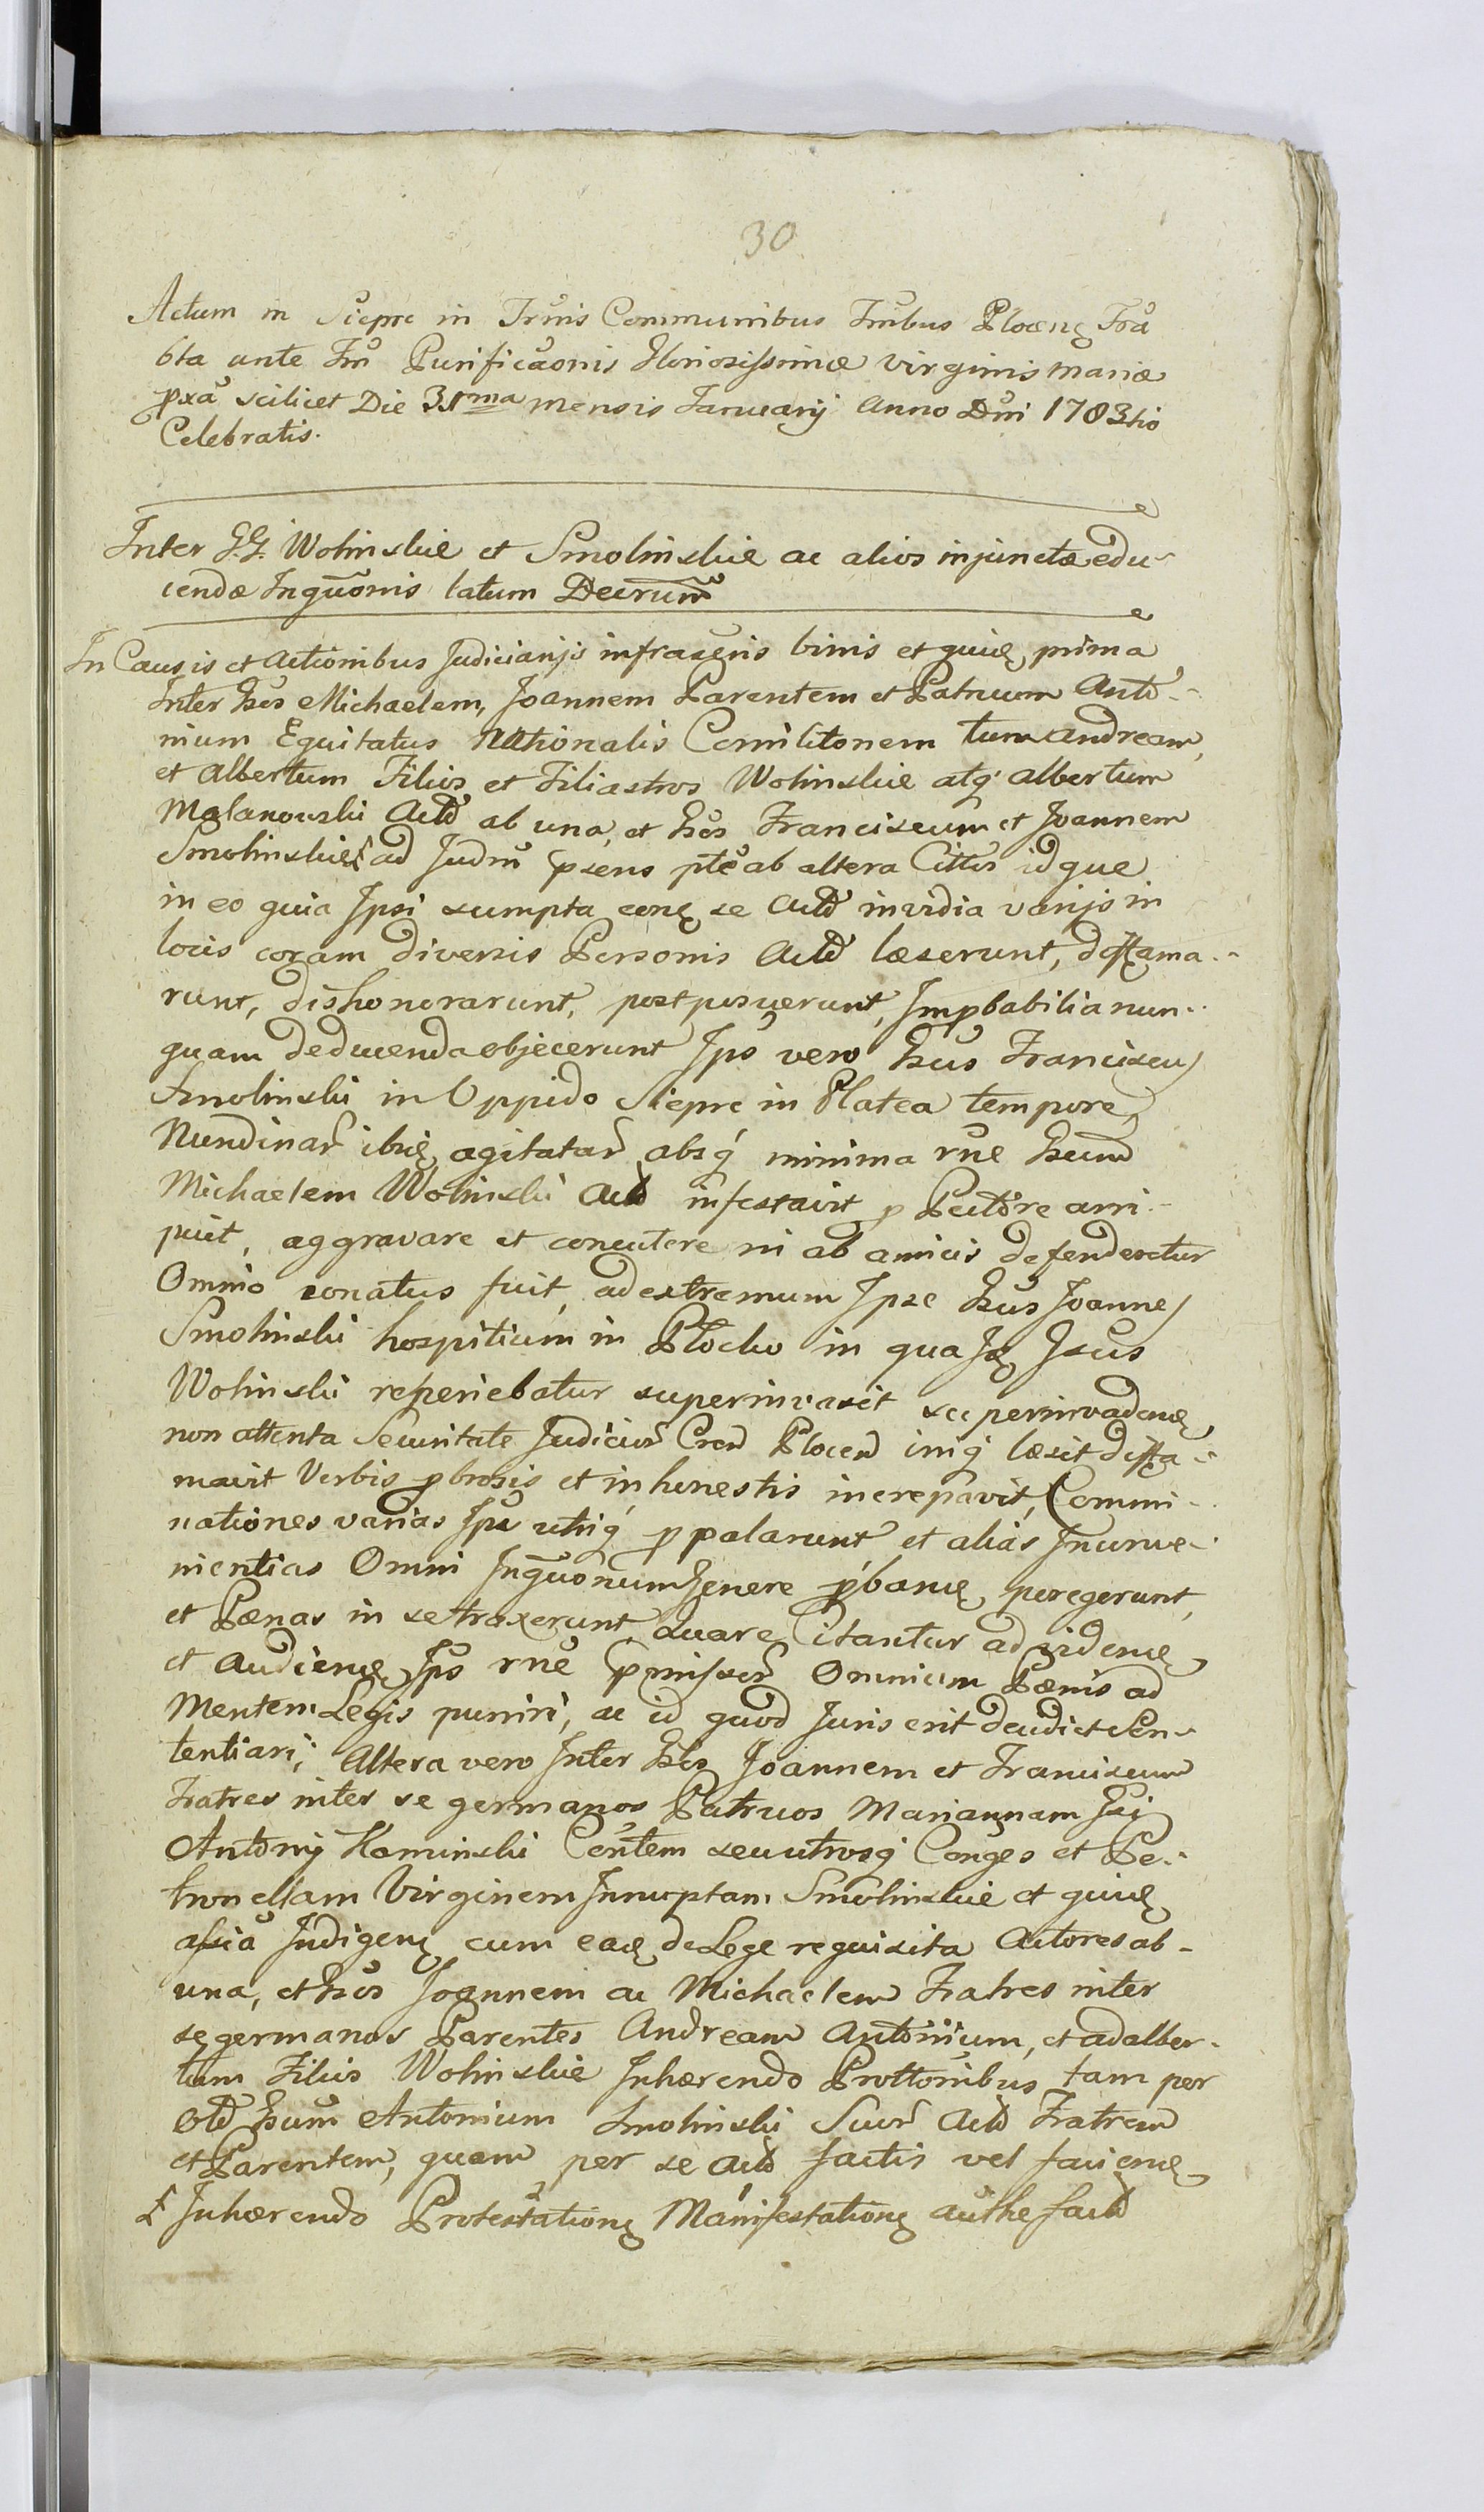 30
Actum in Siepre in Truis Communibus Truibus Plocens Fra
6ta ante Fm Purificaonis Gloriosissimæ virginis mariæ
pxa scilicet Die 31ma mensis Januarij anno Dni 1783tio
Celebratis.
Inter GG. Wolinskie et Smolinskie ac alios injunctæ edu-
cendæ Inquonis latum Decrum
In Causis et actionibus Judiciarijs infrascris binis et quiuę prima
Inter Gsos Michaelem, Joannem Parentem et Patruum Anto-
nium Equitatus Nationalis Comilitonem tum andream,
et albertum Filios et Filiastros Wolinskie atq albertum
Malanowski act ab una, et Gsos Franciscum et Joannem
Smolinskie ad Judm psens pte ab altera Cittos idque
in eo quia Ipsi sumpta conę se act invidia varijs in
locis coram diversis Personis act læserunt, diffama-
runt, dishonorarunt, postposuerunt, Impbabilia nun-
quam deducenda objecerunt Ips vero Gsus Franciscus
Smolinski in Oppido Siepre in Platea tempore
Nundinar ibię agitatar absq minima rne Gsum
Michaelem Wolinski act infestavit p Pectore arri-
puit, aggravare et concutere ni ab amicis defenderetur
Omnio conatus fuit, ad extremum Ipse Gsus Joannes
Smolinski hospitium in Plocko in qua Gsus
Wolinski reperiebatur superinvasit superinvadenę
non attenta Securitate Judicior Cren Plocen iniq læsit diffa-
mavit Verbis pbrosis et inhonestis increpavit, Commi-
nationes varias Ipsi utiq ppalarunt et alias Inconve-
nientias Omni Inquonum genere pbanę peregerunt,
et Pænas in se traxerunt, quare Citantur ad videnę
et audienę Ips rne pmissor Omnium Pænis ad
Mentem Legis puniri, ac id quod Juris erit decidi et Sen-
tentiari; altera vero Inter Gsos Joannem et Franciscum
Fratres inter se germanos Patruos Mariannam Gsi
Antonij Kaminski Contem seu utrosq Conges et Pe-
tronellam Virginem Innuptam Smolinskie et quiuę
assia Indigenę cum eaę de Lege requisita actores ab-
una, et Gsos Joannem ac Michaelem Fratres inter
se germanos Parentes Andream Antonium, et adalber-
tum Filios Wolinskie Inhærendo Prottonibus tam per
olt Gsum Antonium Smolinski Suor act Fratrem
et Parentem, quam per se act factis vel facienę
Inhærendo Protestationę Manifestationę authe fact